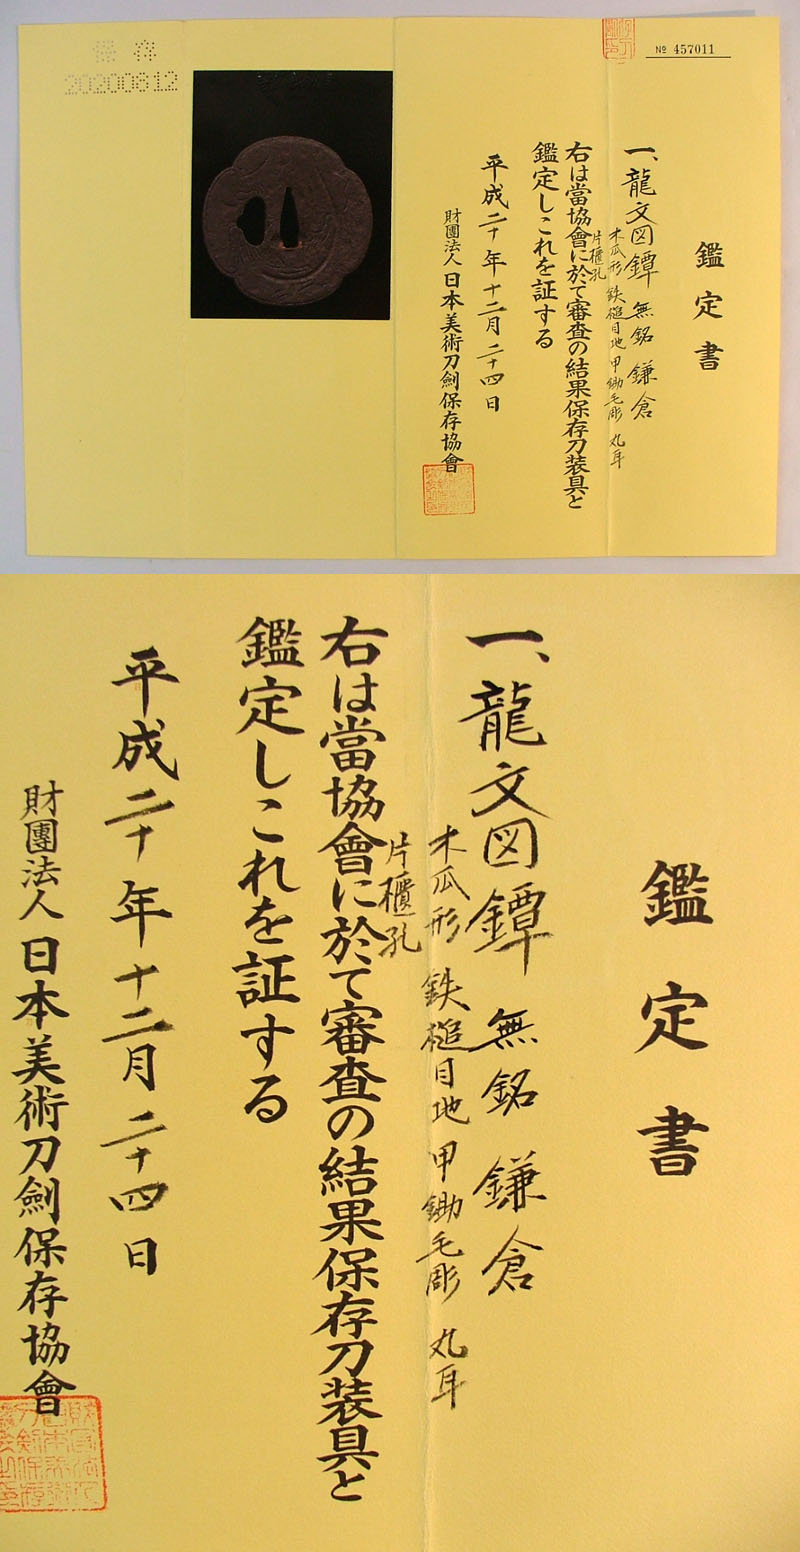 保存
20200812
№ 457011
鑑定書
一、龍文図鐔 無銘 鎌倉
木瓜形 鉄槌目地 甲鋤毛彫 丸耳
片櫃孔
右は當協會に於て審査の結果保存刀装具と
鑑定しこれを証する
平成二十年十二月二十四日
財團法人 日本美術刀劍保存協會
鑑定書
一、龍文図鐔 無銘 鎌倉
木瓜形 鉄槌目地 甲鋤毛彫 丸耳
片櫃孔
右は當協會に於て審査の結果保存刀装具と
鑑定しこれを証する
平成二十年十二月二十四日
財團法人 日本美術刀劍保存協會